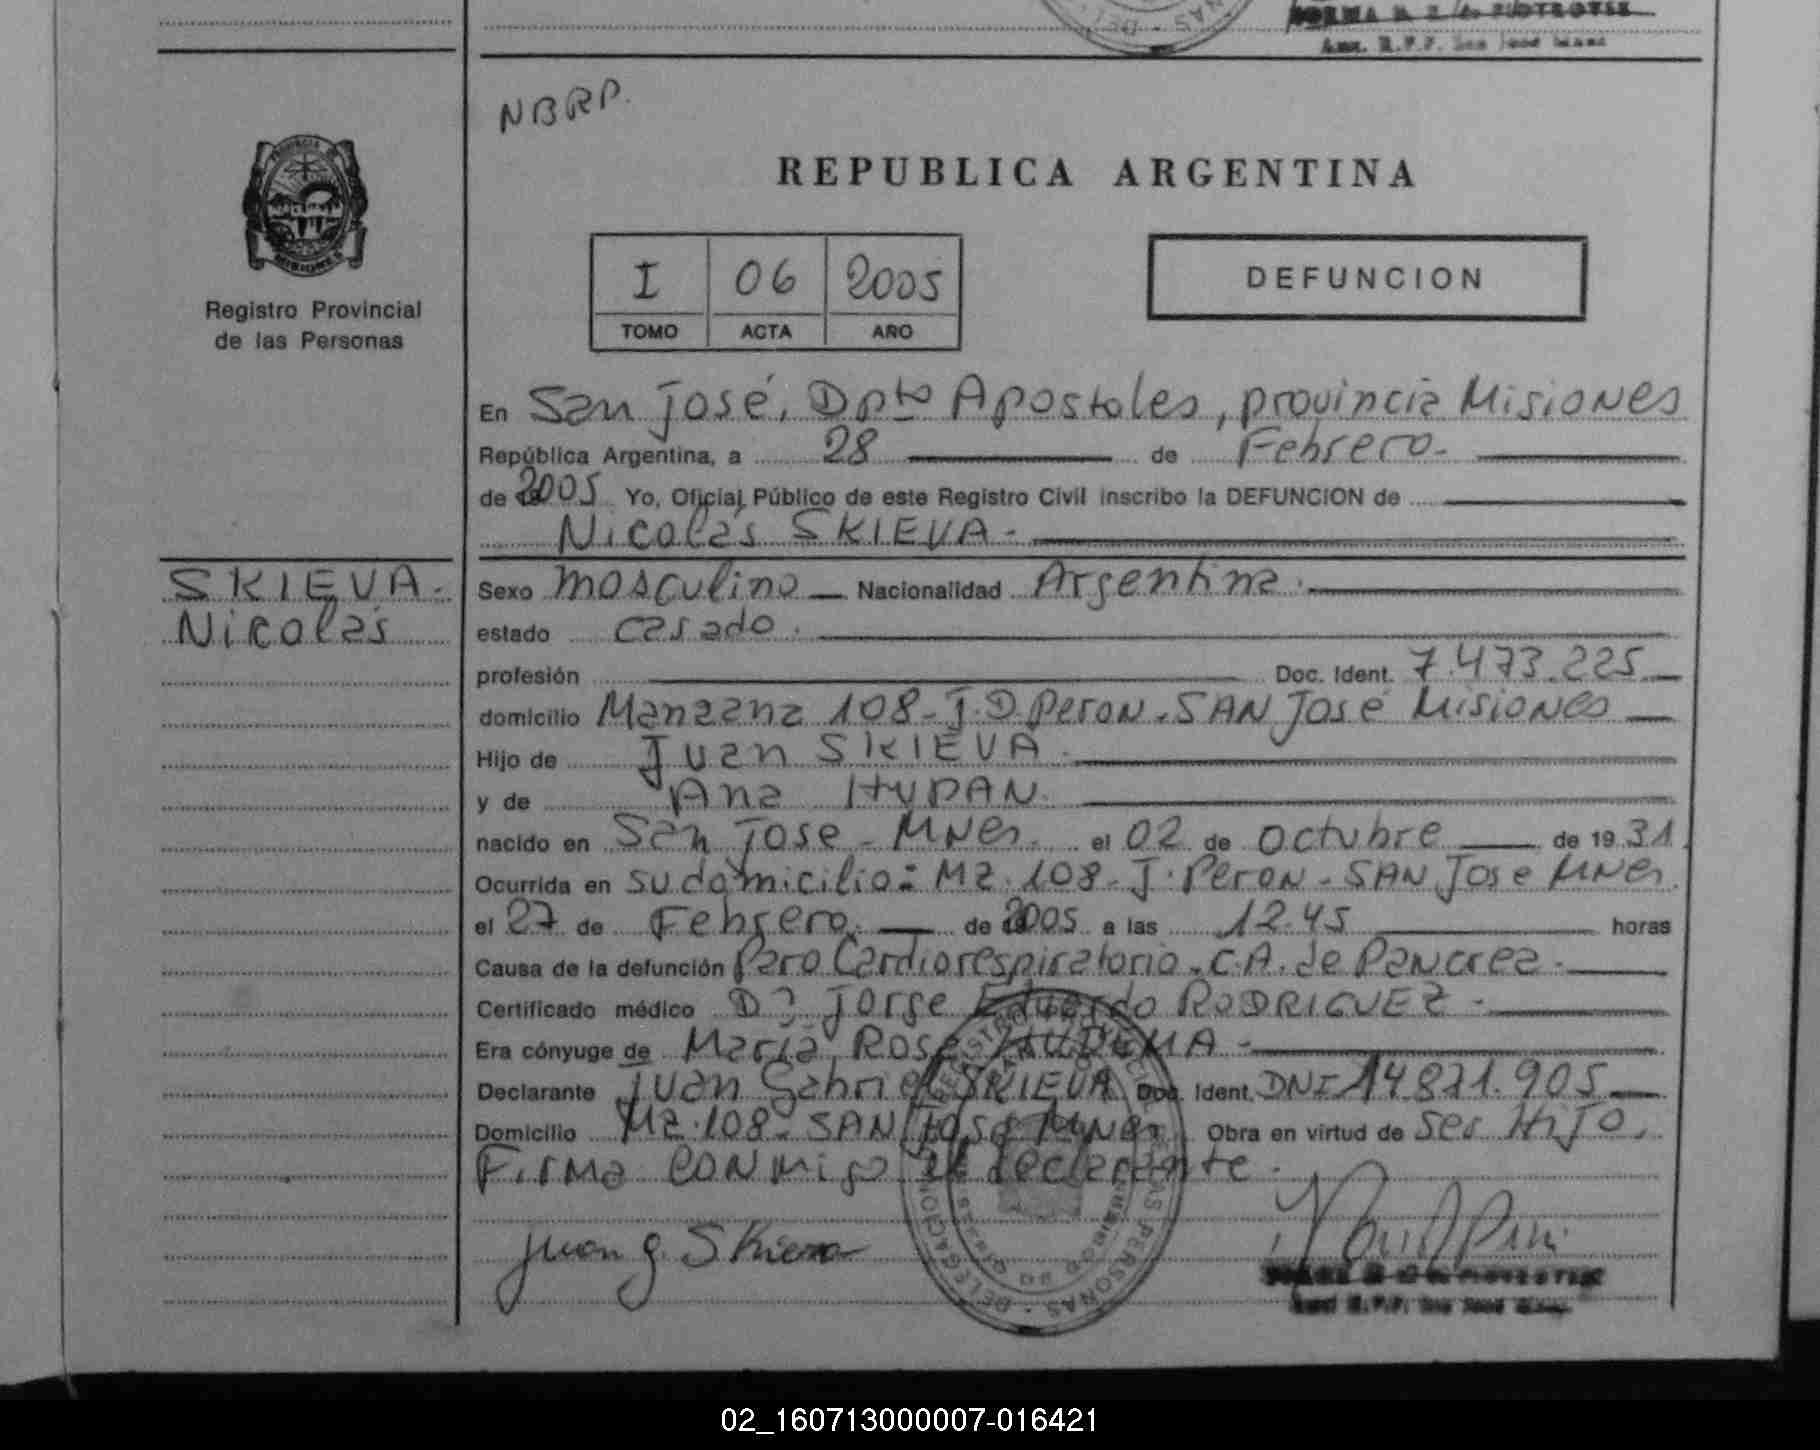 NBRP.
REPUBLICA ARGENTINA
MISIONES
Registro Provincial
de las Personas
I 06 2005
TOMO ACTA AÑO
DEFUNCION
En San José, Dpto Apostoles, provincia Misiones
República Argentina, a 28 de Febrero.
de 2005 Yo, Oficial Público de este Registro Civil inscribo la DEFUNCION de
Nicolás SKIEVA.
SKIEVA.
Nicolás
Sexo masculino Nacionalidad Argentina.
estado casado.
profesión Doc. Ident. 7.473.225
domicilio Manzana 108-J.D Peron. SAN José Misiones
Hijo de Juan SKIEVA.
y de Ana HUPAN.
nacido en San Jose - MNes. el 02 de octubre de 1931
Ocurrida en su domicilio: Mz. 108 - J. Peron - SAN Jose MNes.
el 27 de Febrero. de 2005 a las 12.45 horas
Causa de la defunción Paro Cardiorespiratorio. C.A. de Pancrea.
Certificado médico Dr. Jorge Eduardo RODRIGUEZ.
Era cónyuge de María Rosa
Declarante Juan Gabriel SKIEVA Doc. Ident. DNI 14.871.905
Domicilio Mz. 108- SAN Jose MNes Obra en virtud de ser Hijo,
Firma conmigo el declarante.
Juan G. Skieva
02_160713000007-016421